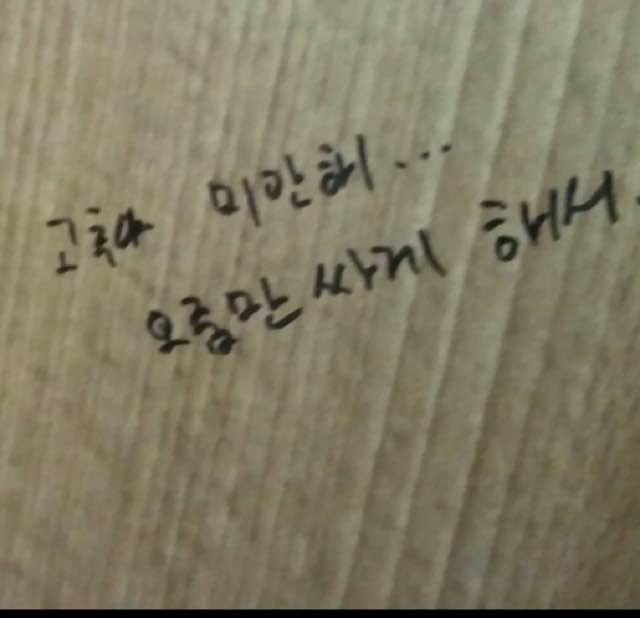 고추야 미안해...
오줌만 싸게 해서.